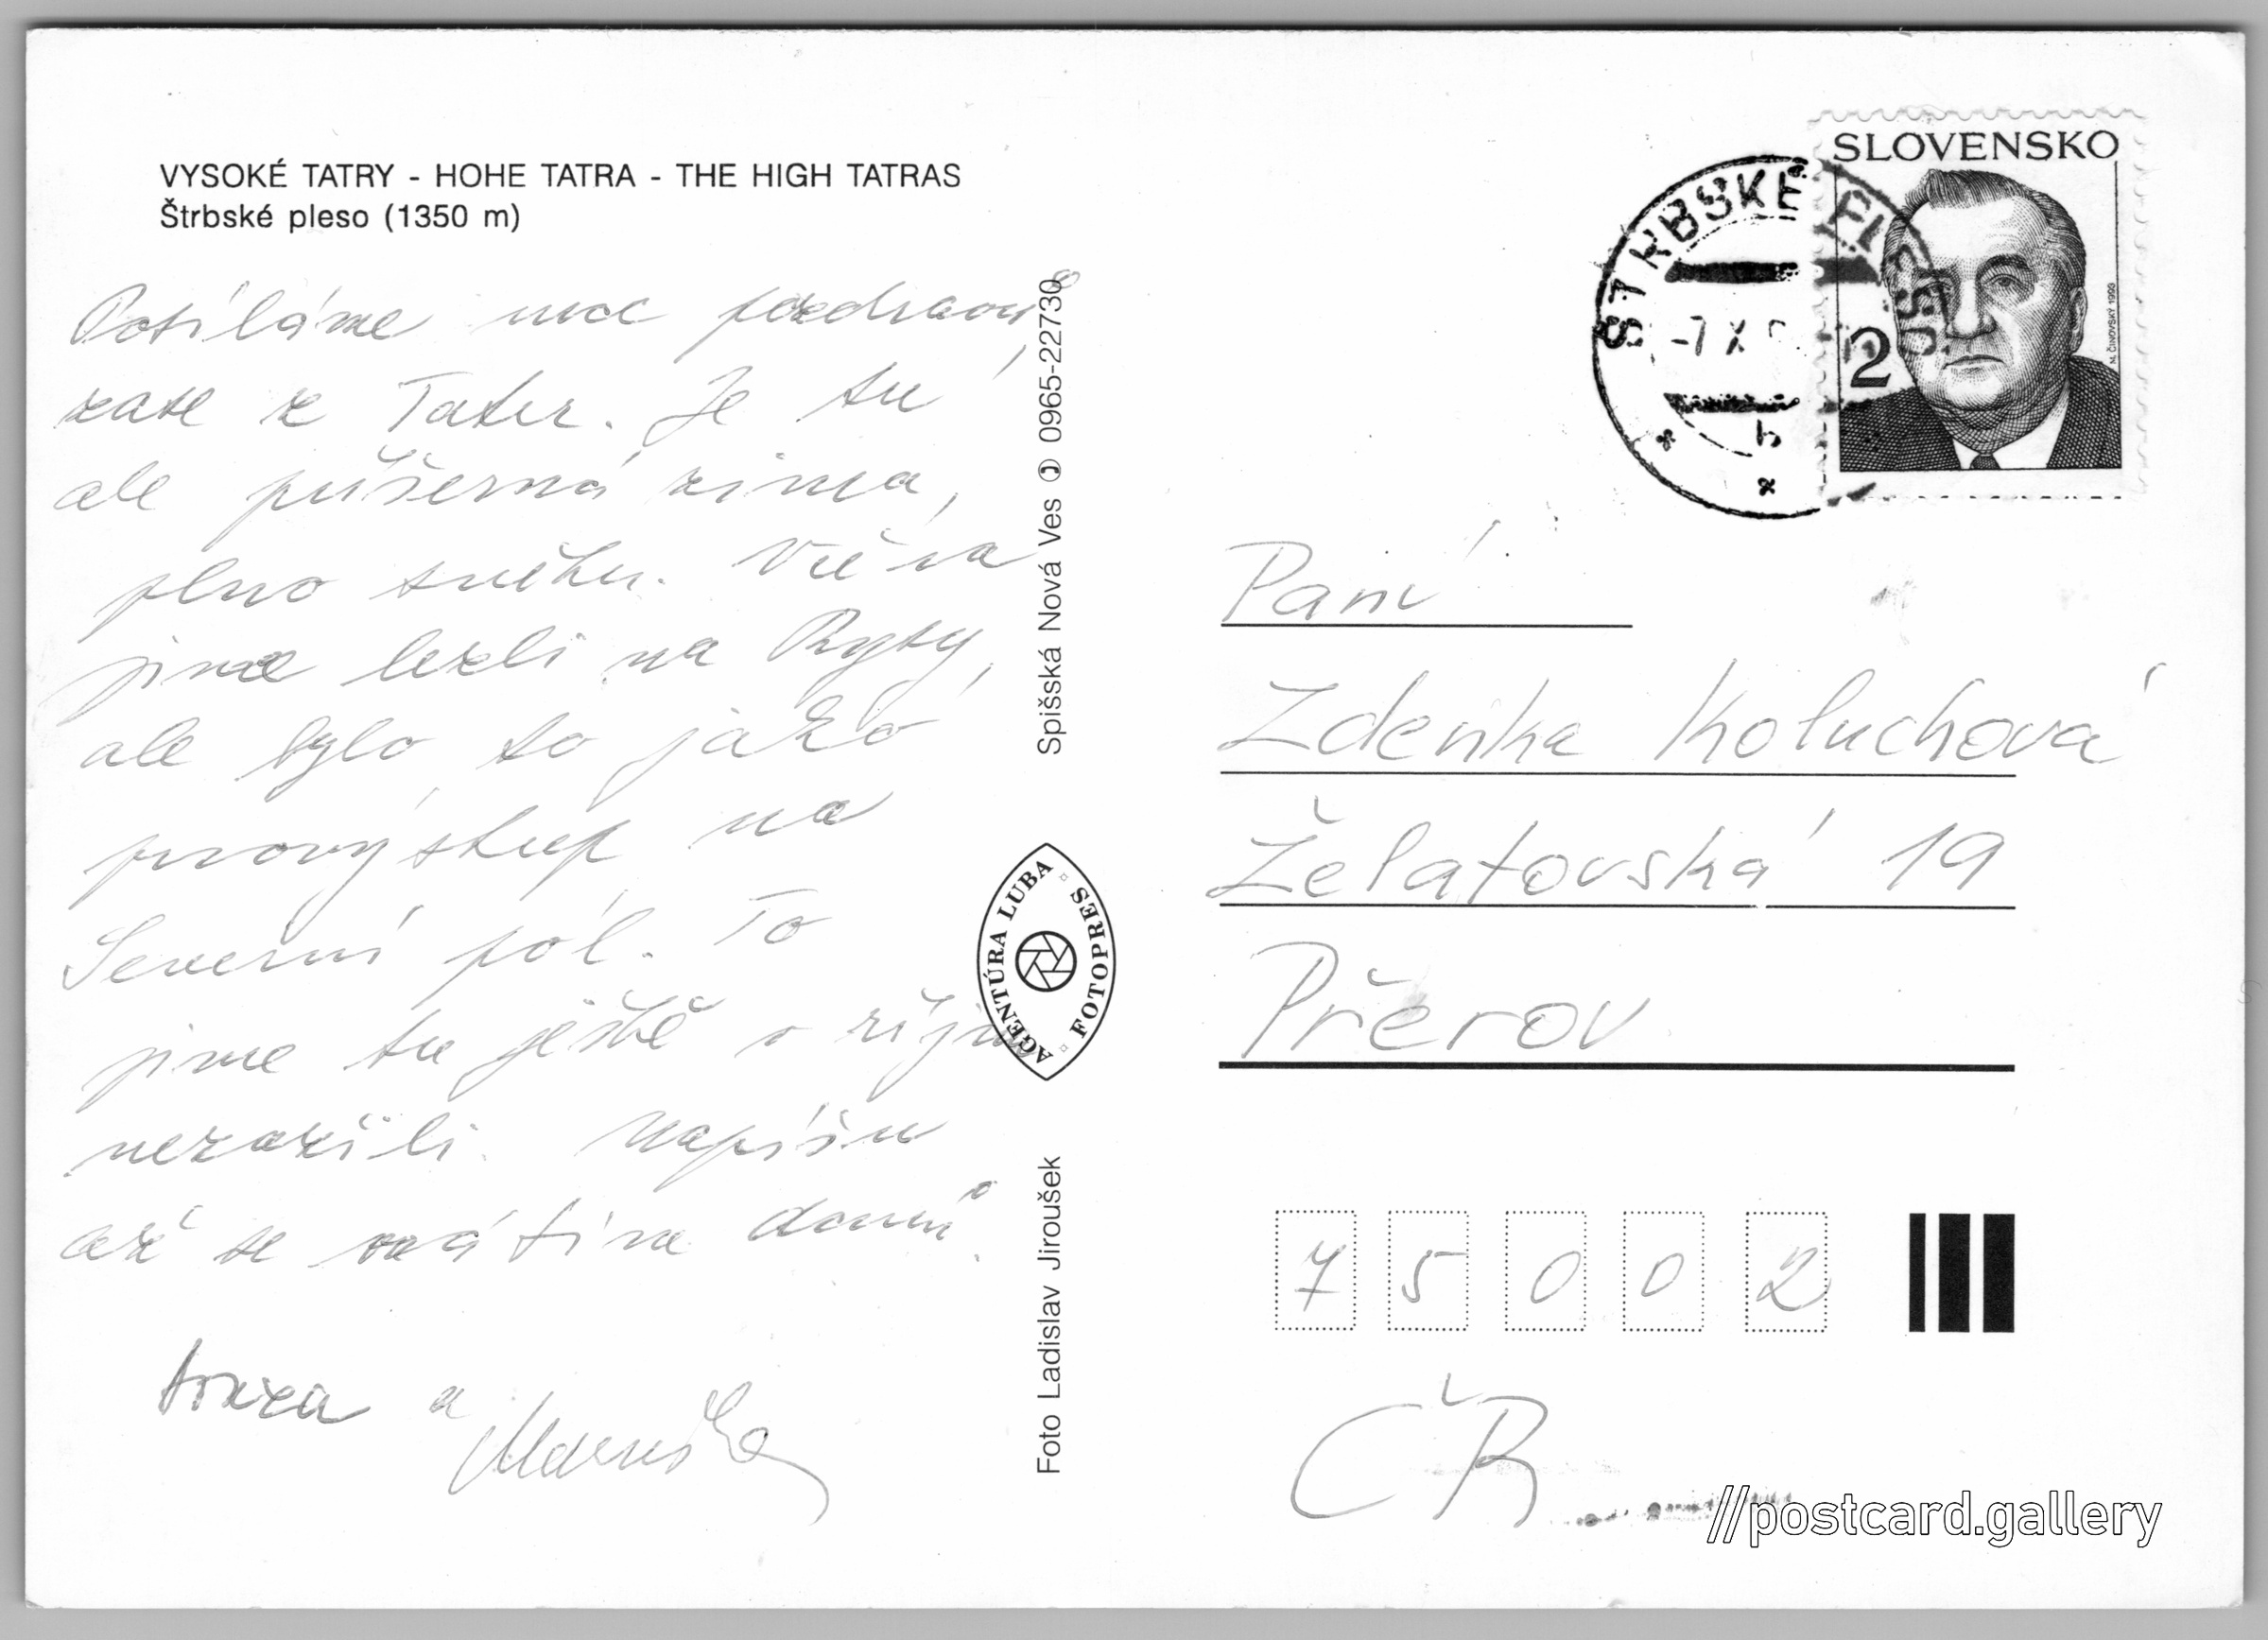 VYSOKÉ TATRY - HOHE TATRA - THE HIGH TATRAS
Štrbské pleso (1350 m)
Posíláme moc pozdravů
zase z Tater. Je tu
ale příšerná zima,
plno sněhu. Včera
jsme lezli na Rysy,
ale bylo to jako
prvovýstup na
Severní pól. To
jsme tu ještě v říjnu
nezažili. Napíšu
až se vrátíme domů.
a
Spišská Nová Ves 0965-22730
AGENTÚRA LUBA
FOTOPRES
Foto Ladislav Jiroušek
SLOVENSKO
2
M. ČINOVSKÝ 1993
ŠTRBSKÉ PLESO
-7 X
b
Paní
Zdenka Koluchová
Želatovská 19
Přerov
75002
ČR
//postcard.gallery